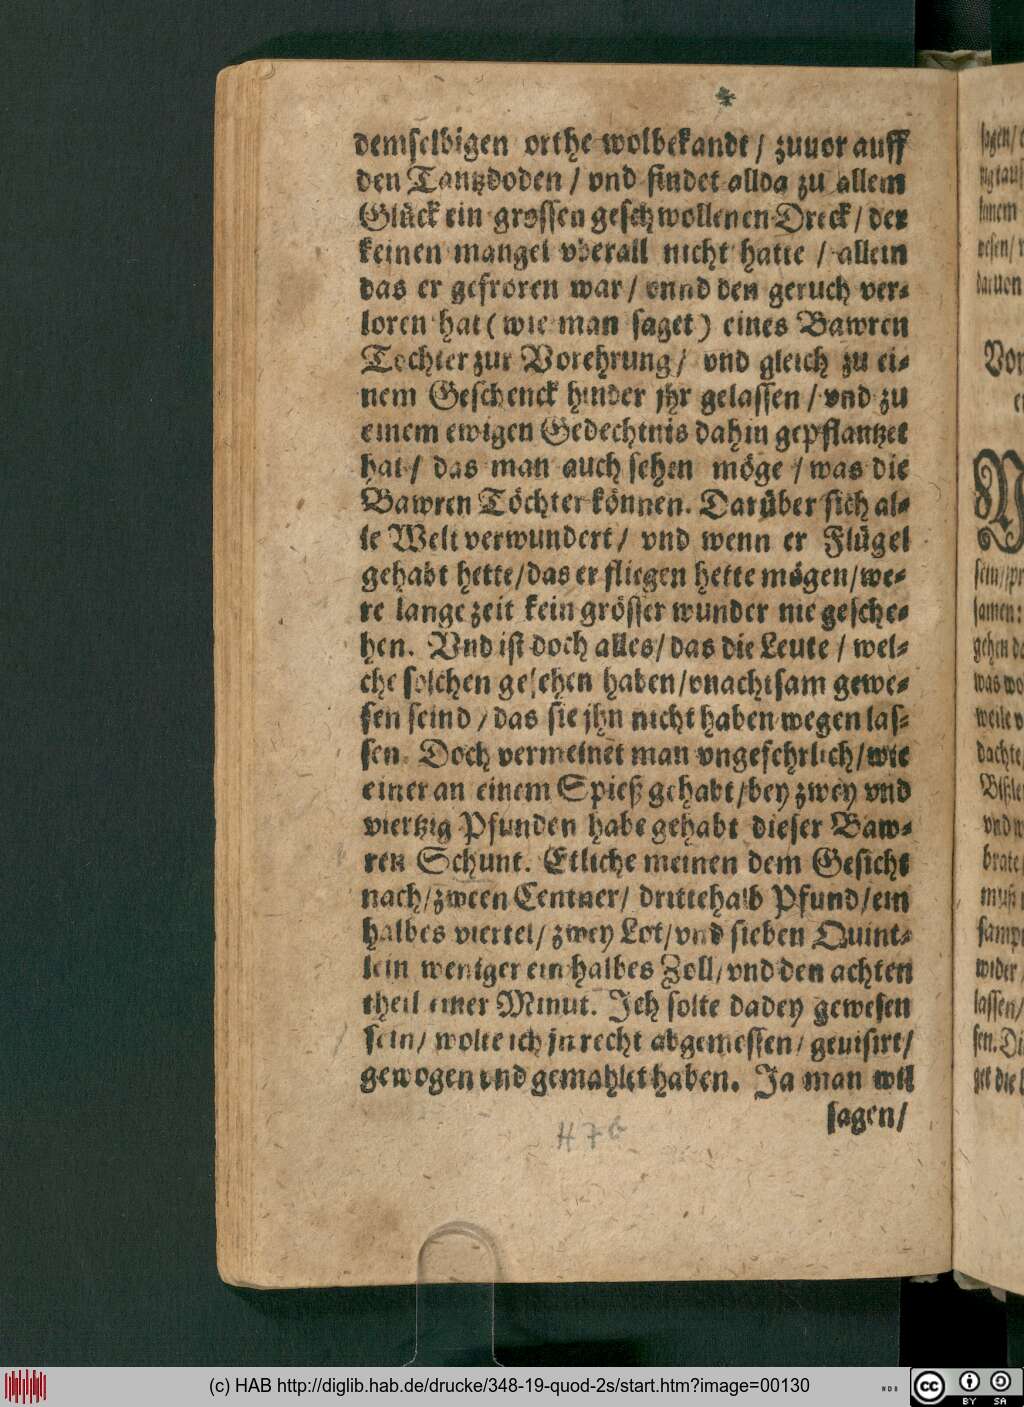 demselbigen orthe wolbekandt / zuuor auff
den Tantzboden / vnd findet allda zu allem
Glück ein grossen geschwollenen Dreck / der
keinen mangel vberall nicht hatte / allein
das er gefroren war / vnnd den geruch ver⸗
loren hat ( wie man saget ) eines Bawren
Tochter zur Vorehrung / vnd gleich zu ei⸗
nem Geschenck hinder jhr gelassen / vnd zu
einem ewigen Gedechtnis dahin gepflantzet
hat / das man auch sehen möge / was die
Bawren Töchter können. Darüber sich al⸗
le Welt verwundert / vnd wenn er Flügel
gehabt hette / das er fliegen hette mögen / we⸗
re lange zeit kein grösser wunder nie gesche⸗
hen. Vnd ist doch alles / das die Leute / wel⸗
che solchen gesehen haben / vnachtsam gewe⸗
sen seind / das sie jhn nicht haben wegen las⸗
sen. Doch vermeinet man vngefehrlich / wie
einer an einem Spieß gehabt / bey zwey vnd
viertzig Pfunden habe gehabt dieser Baw⸗
ren Schunt. Etliche meinen dem Gesicht
nach / zween Centner / drittehalb Pfund / ein
halbes viertel / zwey Lot / vnd sieben Quint⸗
lein weniger ein halbes Zoll / vnd den achten
theil einer Minut. Jch solte dabey gewesen
sein / wolte ich jn recht abgemessen / geuisirt /
gewogen vnd gemahlet haben. Ja man wil
sagen /
H 7 b
Vor
(c) HAB http://diglib.hab.de/drucke/348-19-quod-2s/start.htm?image=00130
cc BY SA